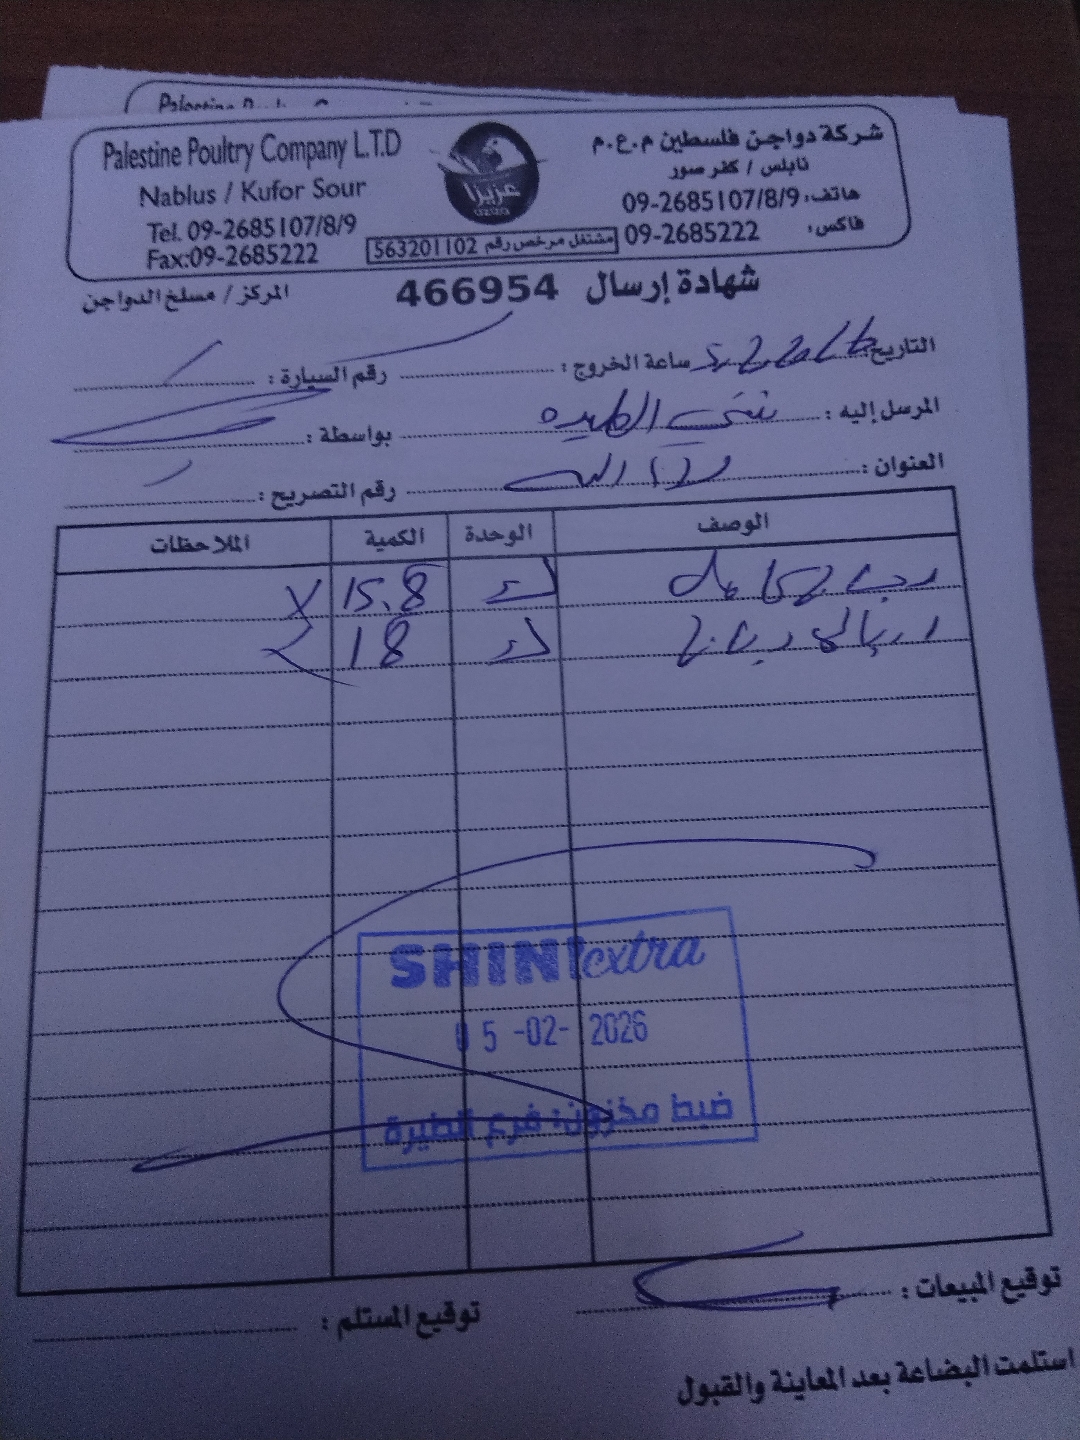 Palestine Poultry Company L.T.D
Nablus / Kufor Sour
Tel. 09-2685107/8/9
Fax:09-2685222
عزيزا
شركة دواجن فلسطين م.ع.م
نابلس / كفر صور
هاتف: 09-2685107/8/9
فاكس: 09-2685222
مشتغل مرخص رقم 563201102
شهادة إرسال 466954
المركز / مسلخ الدواجن
التاريخ: ساعة الخروج: رقم السيارة:
المرسل إليه: شني الطيره بواسطة:
العنوان: رام الله رقم التصريح:
الوصف الوحدة الكمية الملاحظات
دجاج ك 15.8
دجاج ك 18
SHINI extra
05-02-2026
ضبط مخزون: فرع الطيرة
توقيع المبيعات: توقيع المستلم:
استلمت البضاعة بعد المعاينة والقبول